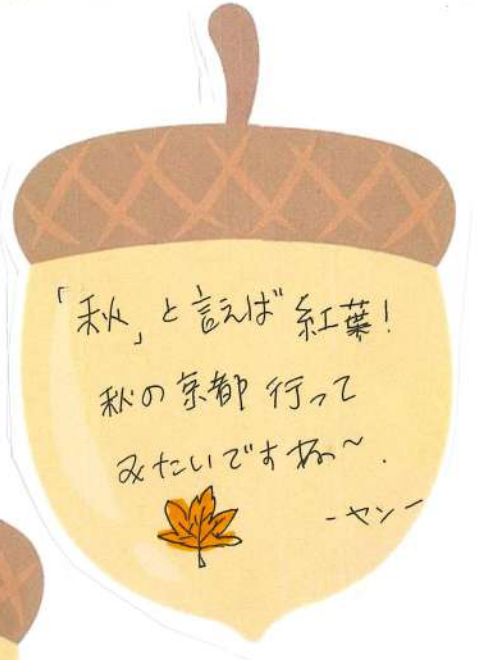 「秋」と言えば紅葉!
秋の京都行って
みたいですね〜.
-ヤン-